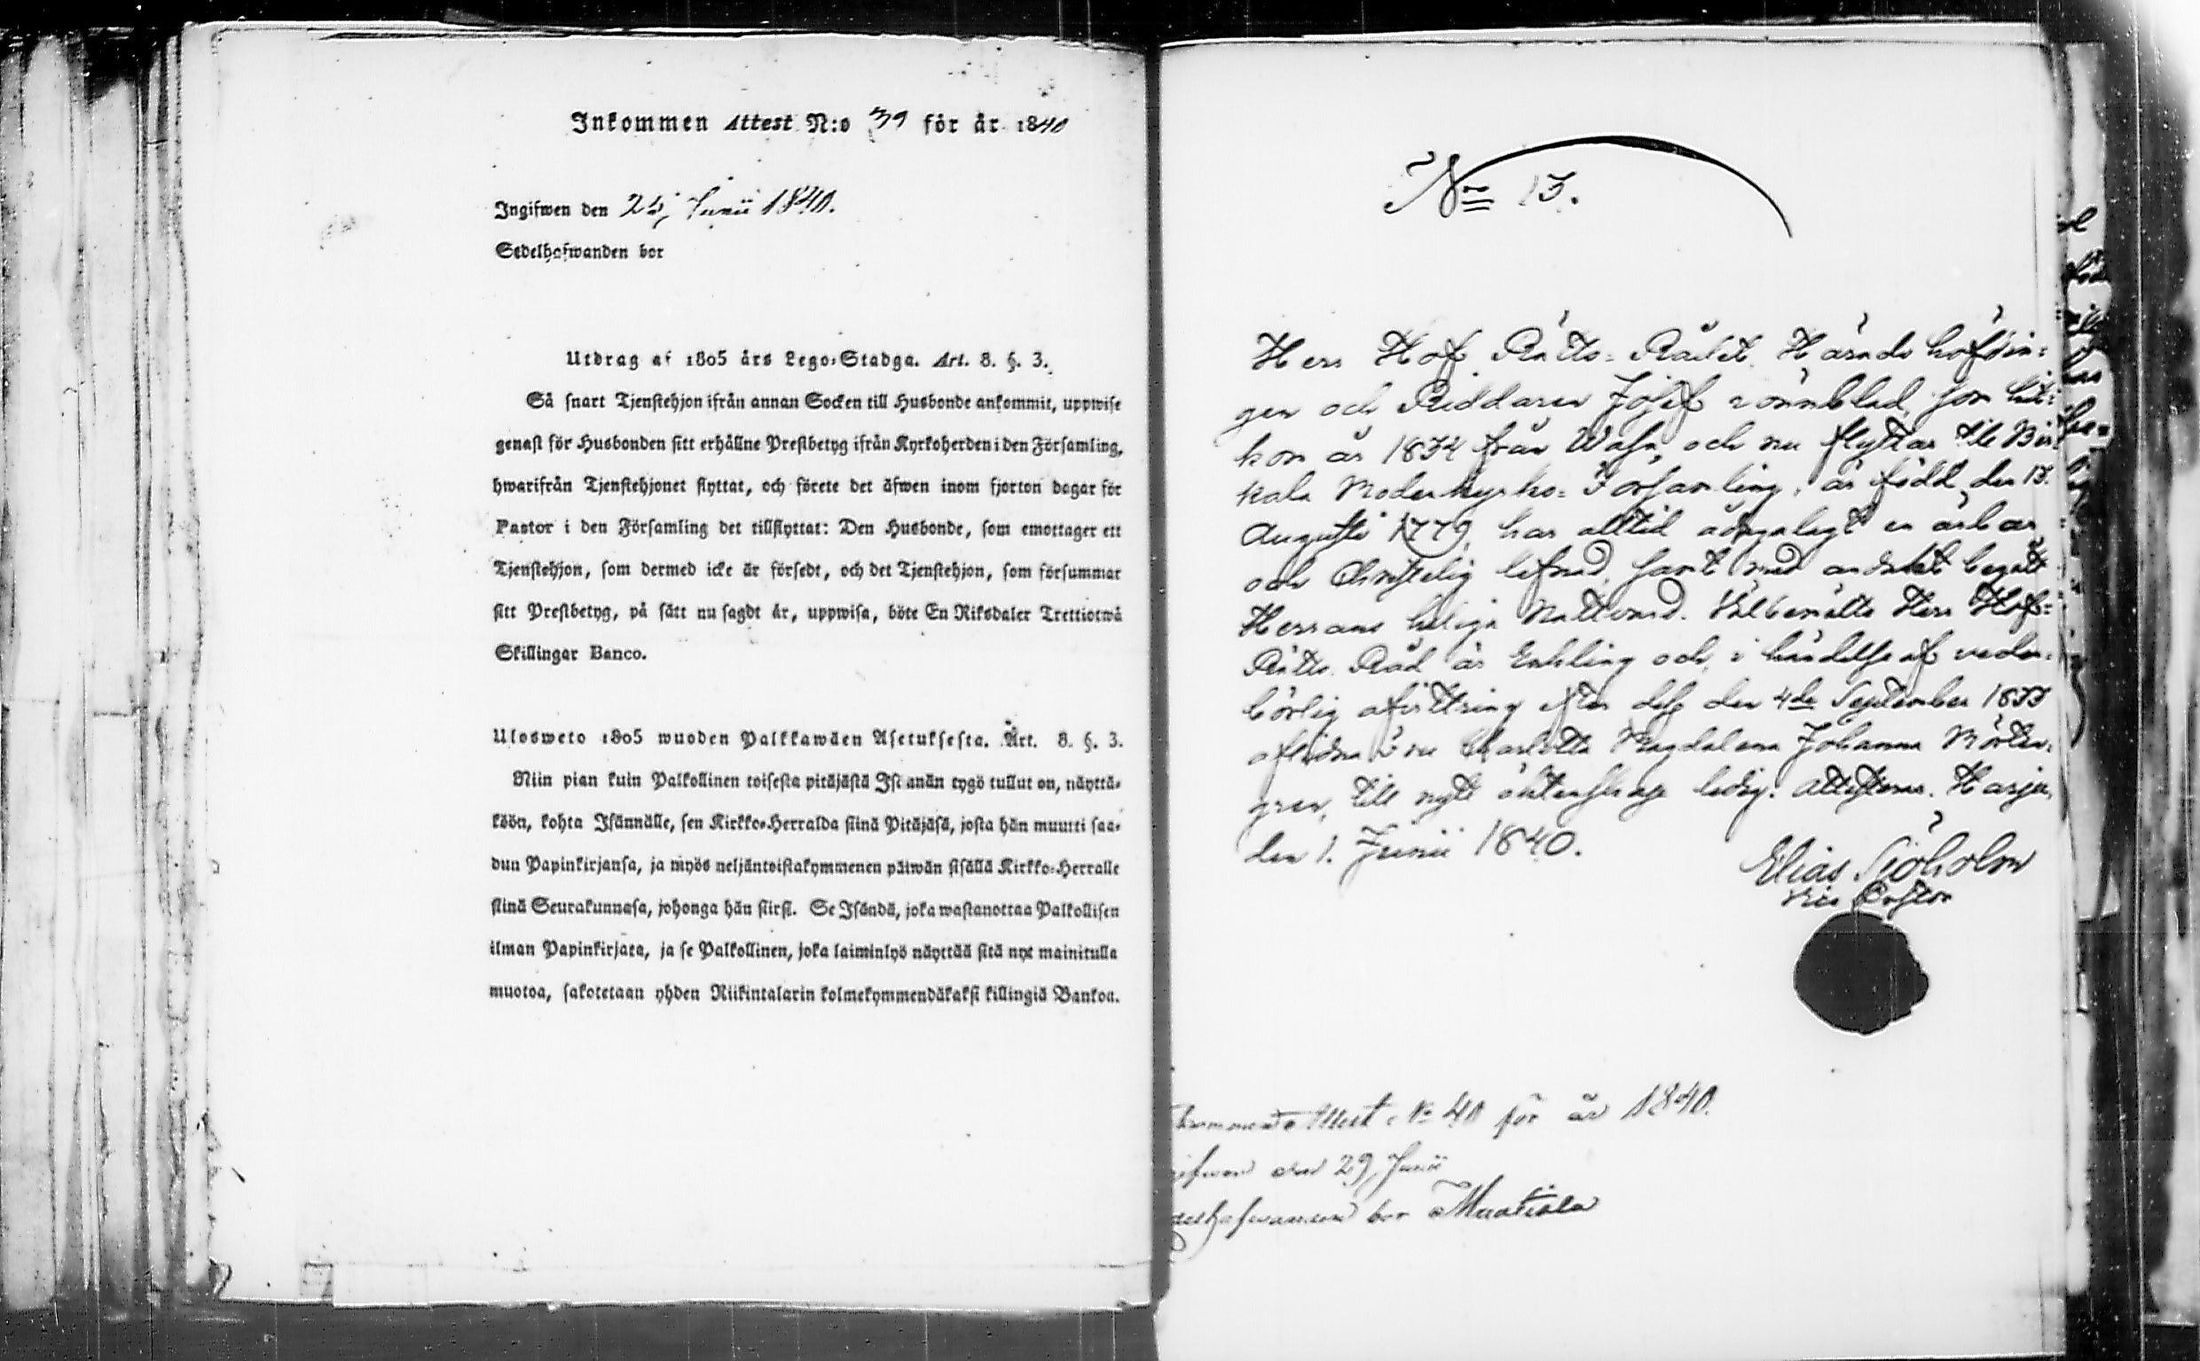 Inkommen Attest N:o 39 för år 1840
Ingifwen den 25 Junii 1840.
Sedelhafwanden bor
Utdrag af 1805 års Lego-Stadga. Art. 8. §. 3.
Så snart Tjenstehjon ifrån annan Socken till Husbonde ankommit, uppwise
genast för Husbonden sitt erhållne Prestbetyg ifrån Kyrkoherden i den Församling,
hwarifrån Tjenstehjonet flyttat, och förete det äfwen inom fjorton dagar för
Pastor i den Församling det tillflyttat: Den Husbonde, som emottager ett
Tjenstehjon, som dermed icke är försedt, och det Tjenstehjon, som försummar
sitt Prestbetyg, på sätt nu sagdt är, uppwisa, böte En Riksdaler Trettiotwå
Skillingar Banco.
Ulosweto 1805 wuoden Palkkawäen Asetuksesta. Art. 8. §. 3.
Niin pian kuin Palkollinen toisesta pitäjästä Isäntänsä tygö tullut on, näyttä-
köön, kohta Isännälle, sen Kirkko-Herralda siinä Pitäjäsä, josta hän muutti saa-
dun Papinkirjansa, ja myös neljäntoistakymmenen päiwän sisällä Kirkko-Herralle
siinä Seurakunnasa, johonga hän siirsi. Se Isändä, joka wastanottaa Palkollisen
ilman Papinkirjata, ja se Palkollinen, joka laiminlyö näyttää sitä nyt mainitulla
muotoa, sakotetaan yhden Riikintalarin kolmekymmendäkaksi killingiä Bankoa.
No 13.
Herr Hof Rätts-Rådet Häradshöfdin-
gen och Riddaren Josef Rönnblad, som hit-
kom år 1834 från Wasa, och nu flyttar till Bir-
kala Moderkyrko-Församling, är född den 13
Augusti 1779, har alltid ådagalagt en ärbar
och Christelig lefnad, samt med andakt begått
Herrans heliga Nattvard. Välbemälte Herr Hof-
Rätts Råd är Enkling och, i händelse af veder-
börlig afvittring efter dess den 4de September 1833
aflidna Fru Charlotta Magdalena Johanna Mörten-
gren, till nytt äktenskap ledig. Attesteras. Harju,
den 1. Junii 1840.
Elias Sjöholm
Vice Pastor
Attest No 40 för år 1840.
den 29 Junii
bor Muotiala